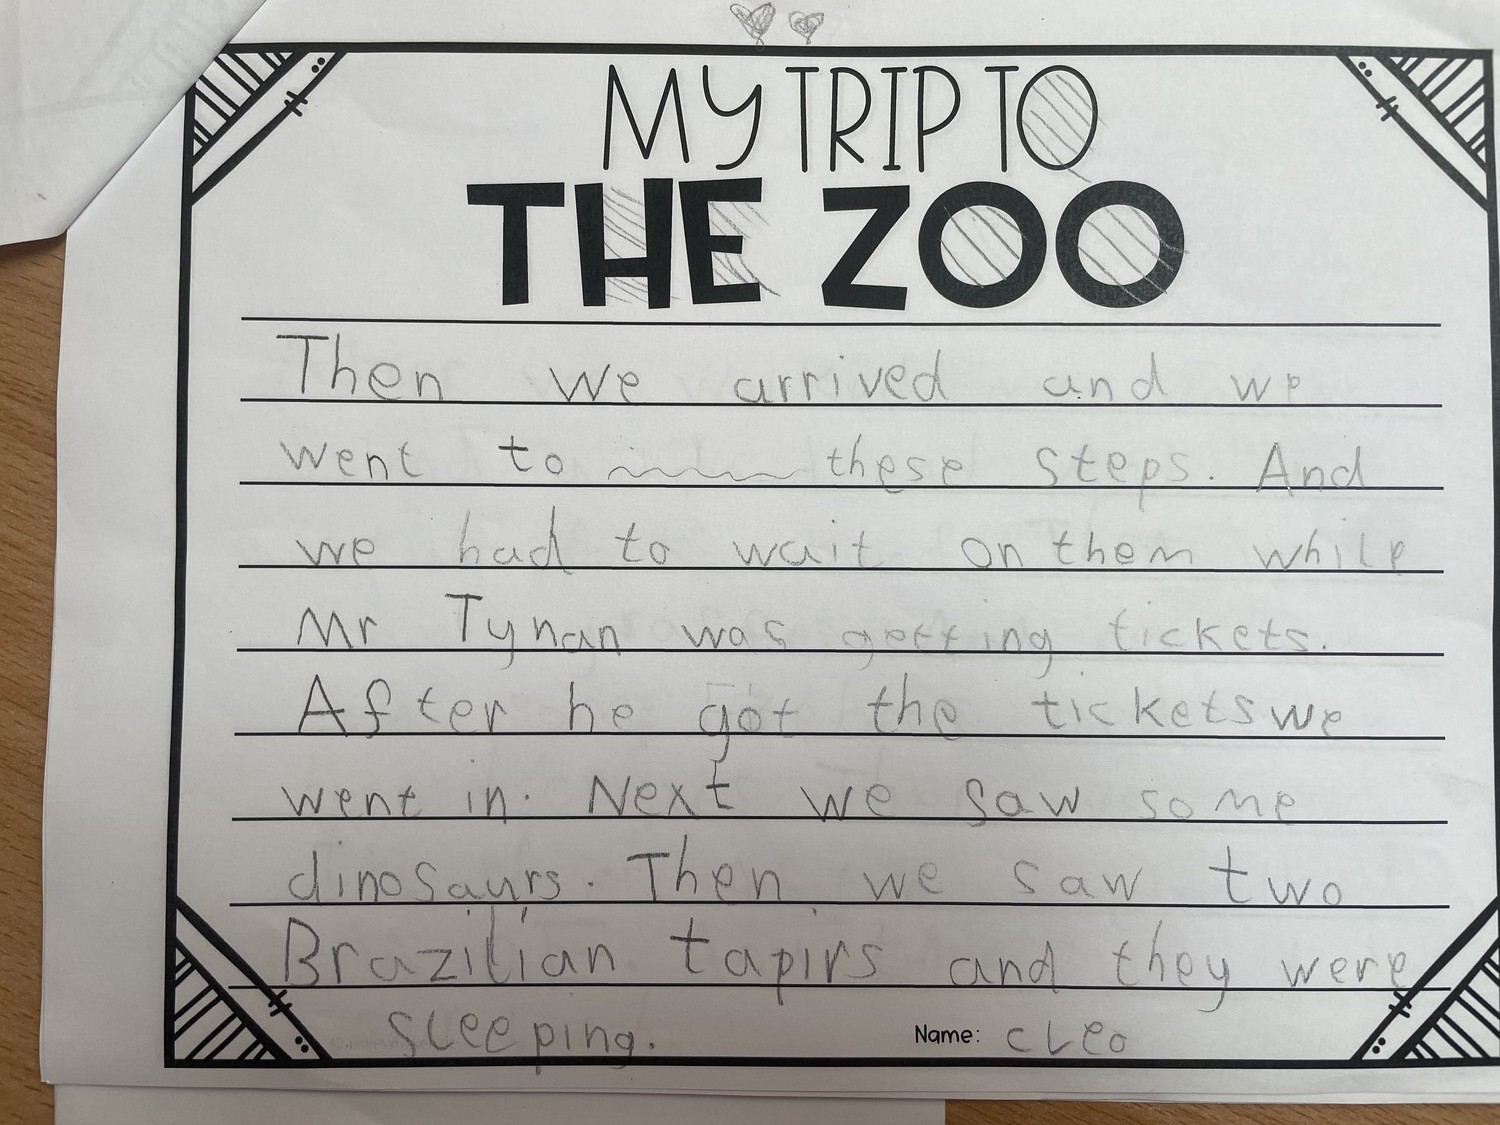 MY TRIP TO
THE ZOO
Then we arrived and we
went to these steps. And
we had to wait on them while
Mr Tynan was getting tickets.
After he got the tickets we
went in. Next we saw some
dinosaurs. Then we saw two
Brazilian tapirs and they were
sleeping.
Name: cleo